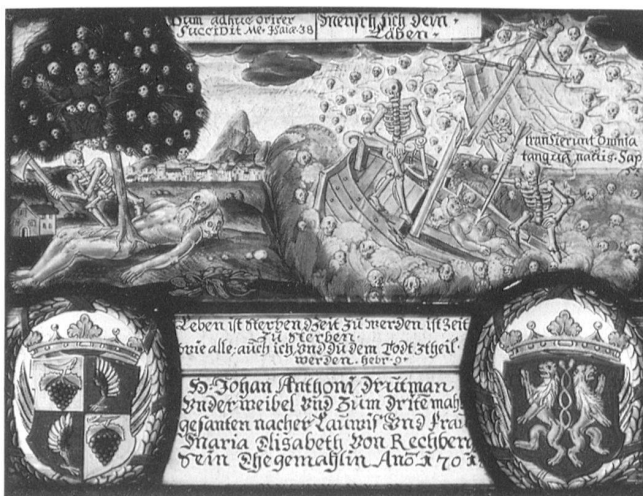 Dum adhuc orirer
Succidit Me. Isaiæ. 38
Mensch sich dein
Läben.
transierunt omnia
tanquã nauis. Sap
Leben ist sterben Zeit zu werden ist Zeit
zu sterben
wie alle, auch ich und du dem Todt z'theil
werden. hebr. 9.
H. Johan Anthoni Trütman
Underweibel Und Zum drite mahl
gesanten nacher Lauwis Und fraw
Maria Elisabeth Von Rechberg
Sein Ehegemahlin Anõ 1701